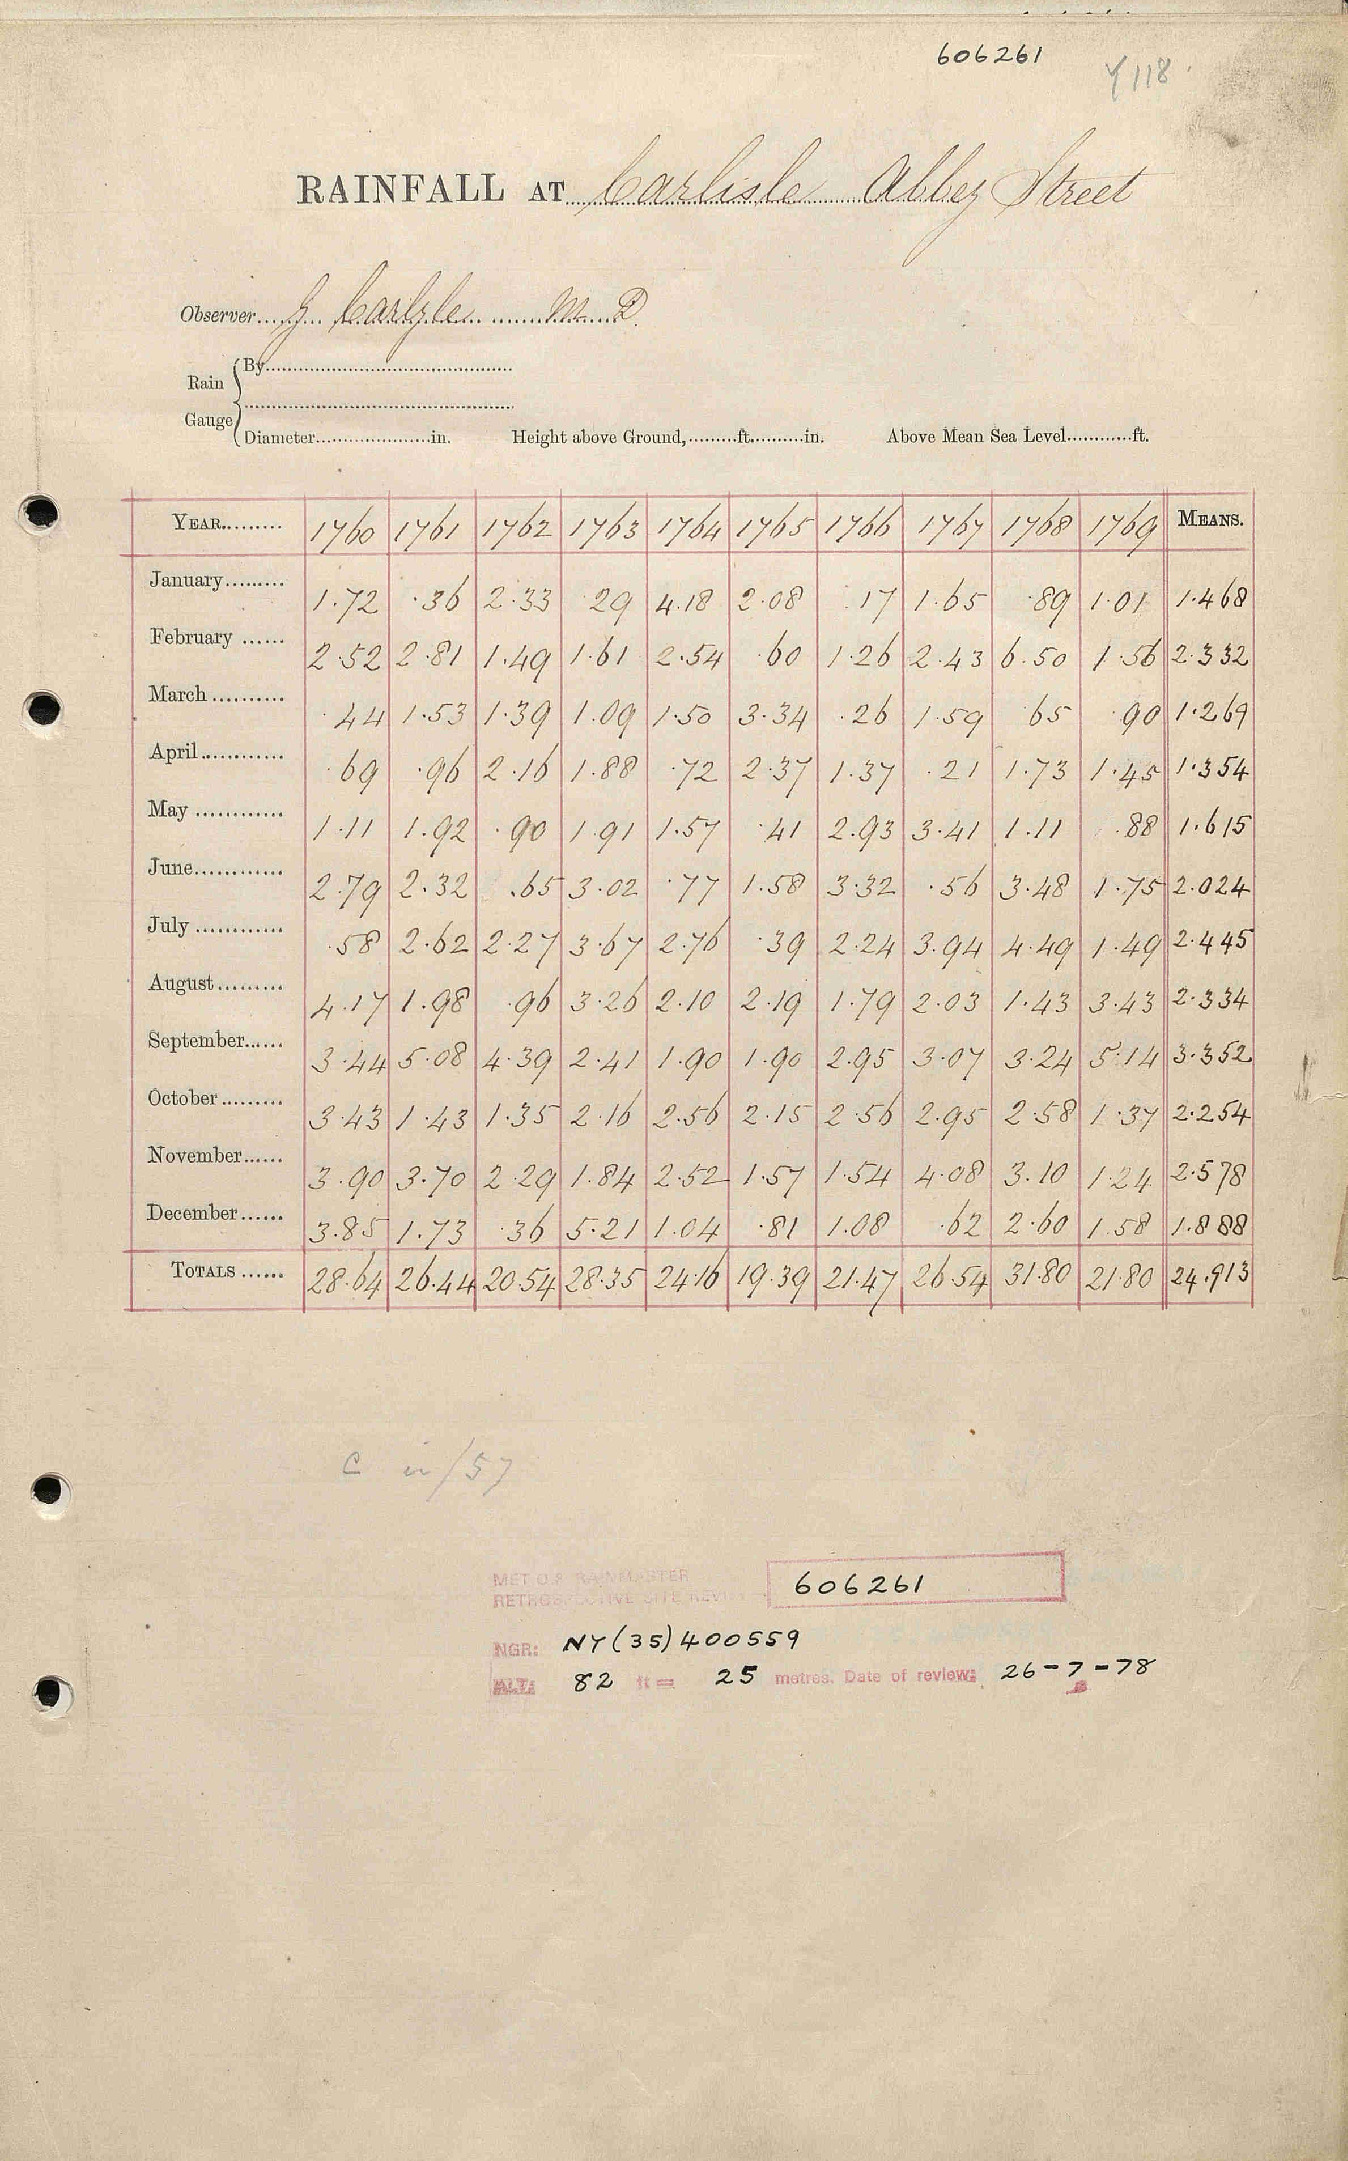 606261
Y118.
RAINFALL AT Carlisle Abbey Street
Observer G Carlyle M D.
Rain Gauge { By
Diameter in. Height above Ground, ft. in. Above Mean Sea Level ft.
YEAR 1760 1761 1762 1763 1764 1765 1766 1767 1768 1769 MEANS.
January 1.72 .36 2.33 .29 4.18 2.08 .17 1.65 .89 1.01 1.468
February 2.52 2.81 1.49 1.61 2.54 .60 1.26 2.43 6.50 1.56 2.332
March .44 1.53 1.39 1.09 1.50 3.34 .26 1.59 .65 .90 1.269
April .69 .96 2.16 1.88 .72 2.37 1.37 .21 1.73 1.45 1.354
May 1.11 1.92 .90 1.91 1.57 .41 2.93 3.41 1.11 .88 1.615
June 2.79 2.32 .65 3.02 .77 1.58 3.32 .56 3.48 1.75 2.024
July .58 2.62 2.27 3.67 2.76 .39 2.24 3.94 4.49 1.49 2.445
August 4.17 1.98 .96 3.26 2.10 2.19 1.79 2.03 1.43 3.43 2.334
September 3.44 5.08 4.39 2.41 1.90 1.90 2.95 3.07 3.24 5.14 3.352
October 3.43 1.43 1.35 2.16 2.56 2.15 2.56 2.95 2.58 1.37 2.254
November 3.90 3.70 2.29 1.84 2.52 1.57 1.54 4.08 3.10 1.24 2.578
December 3.85 1.73 .36 5.21 1.04 .81 1.08 .62 2.60 1.58 1.888
TOTALS 28.64 26.44 20.54 28.35 24.16 19.39 21.47 26.54 31.80 21.80 24.913
C /57
MET O.8 RAINMASTER
RETROSPECTIVE SITE REVIEW 606261
NGR: NY (35) 400559
ALT: 82 ft = 25 metres. Date of review: 26-7-78